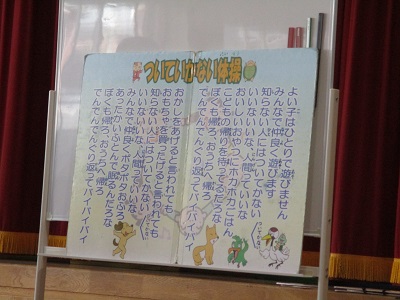 ついていかない体操
よい子はひとりで遊びません
みんなで仲良く遊びます
知らない人にはついてかない
いいないいな、人間っていいな
おいしいおやつにホカホカごはん
こどもの帰りを待ってるだろな
ぼくも帰ろ、おうちへ帰ろ
でんでんでんぐり返ってバイバイバイ
おかしをあげると言われても
おもちゃを買ったげると言われても
知らない人にはついてかない
いいないいな、人間っていいな
みんなで仲良くポチャポチャおふろ
あったかいふとんで眠るんだろな
ぼくも帰ろ、おうちへ帰ろ
でんでんでんぐり返ってバイバイバイ